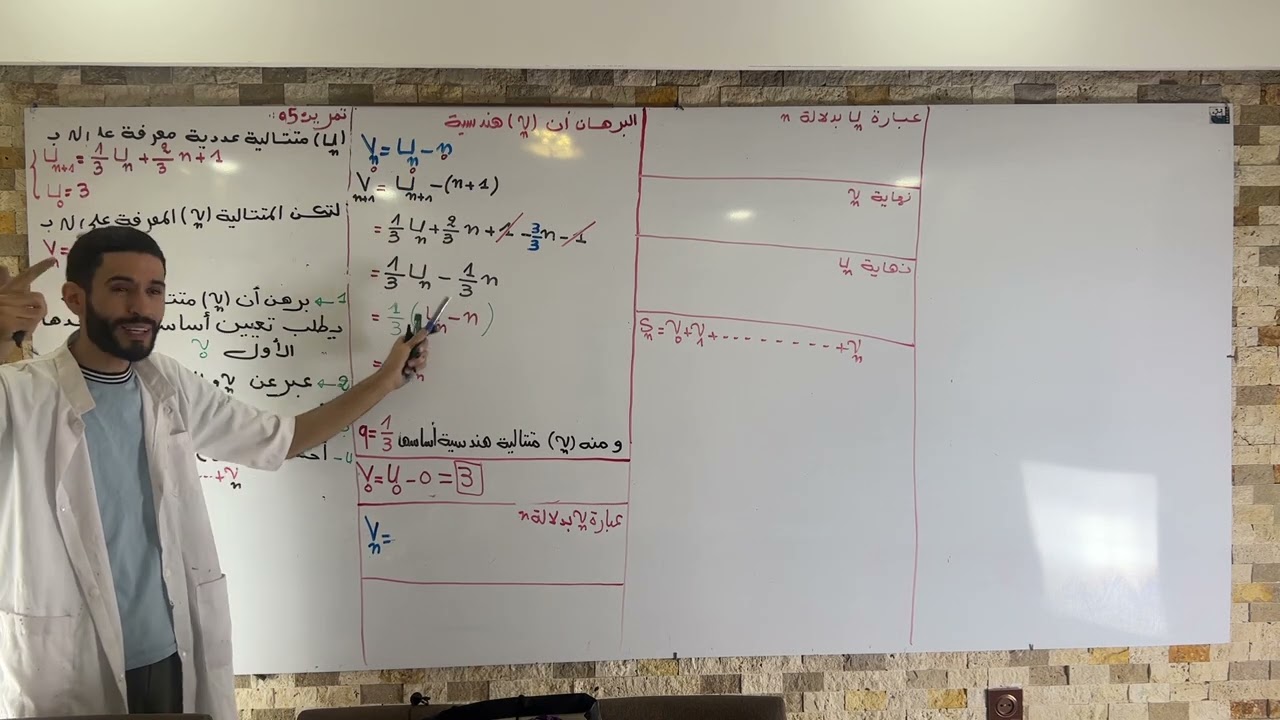 تمرين 05:
(Uₙ) متتالية عددية معرفة على ℕ ب
Uₙ₊₁ = 1/3 Uₙ + 2/3 n + 1
U₀ = 3
لتكن المتتالية (Vₙ) المعرفة على ℕ ب
Vₙ =
1← برهن أن (Vₙ)
يطلب تعيين
الأول V₀
2← عبر عن Vₙ
4-
+Vₙ
البرهان أن (Vₙ) هندسية
Vₙ = Uₙ - n
Vₙ₊₁ = Uₙ₊₁ - (n+1)
= 1/3 Uₙ + 2/3 n + 1 - 3/3 n - 1
= 1/3 Uₙ - 1/3 n
= 1/3 (Uₙ - n)
=
و منه (Vₙ) متتالية هندسية أساسها q = 1/3
V₀ = U₀ - 0 = 3
عبارة Vₙ بدلالة n
Vₙ =
عبارة Uₙ بدلالة n
نهاية Vₙ
نهاية Uₙ
Sₙ = V₀ + V₁ + ......... + Vₙ